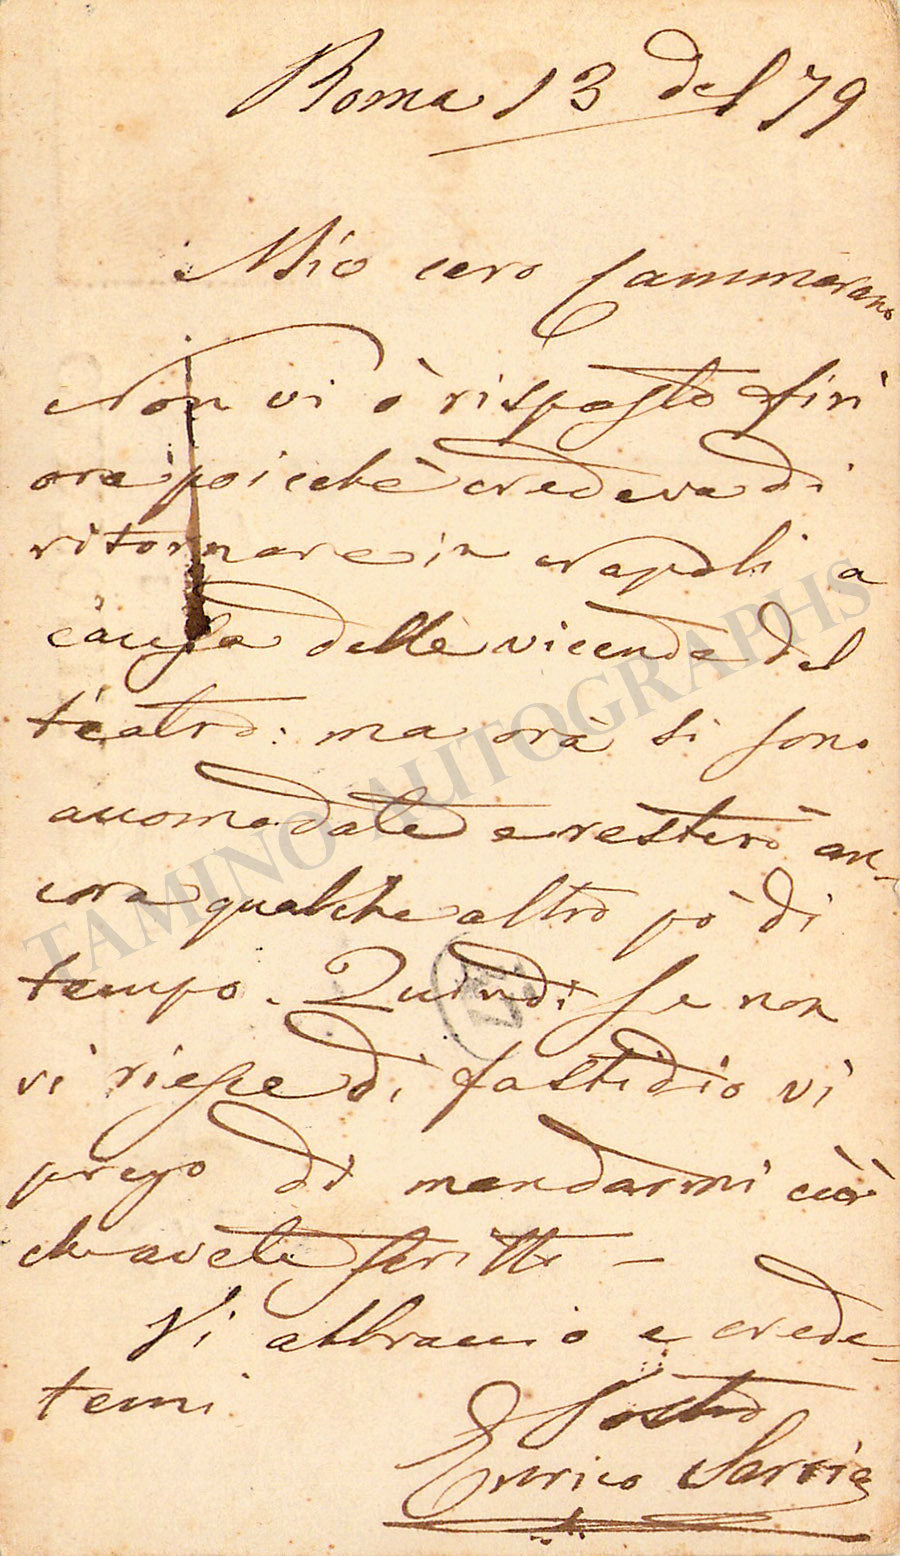 Roma 13 del 79
Mio caro Cammarano
Non vi ò risposto fin
ora poicchè credeva di
ritornare in Napoli a
causa delle vicende del
teatro: ma ora si sono
accomodate e resterò an-
cora qualche altro pò di
tempo. Quindi se non
vi riesce di fastidio vi
prego di mandarmi ciò
che avete scritto —
Vi abbraccio e crede-
temi
Vostro
Enrico Sarria
TAMINO AUTOGRAPHS